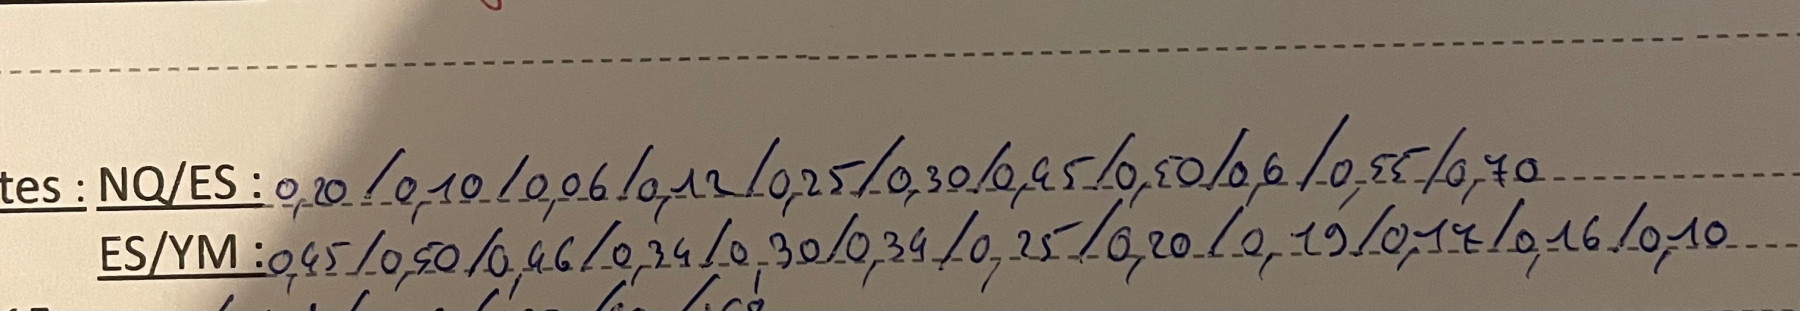 tes : NQ/ES : 0,20/0,10/0,06/0,12/0,25/0,30/0,45/0,50/0,6/0,55/0,70
ES/YM : 0,45/0,50/0,46/0,34/0,30/0,34/0,25/0,20/0,19/0,17/0,16/0,10